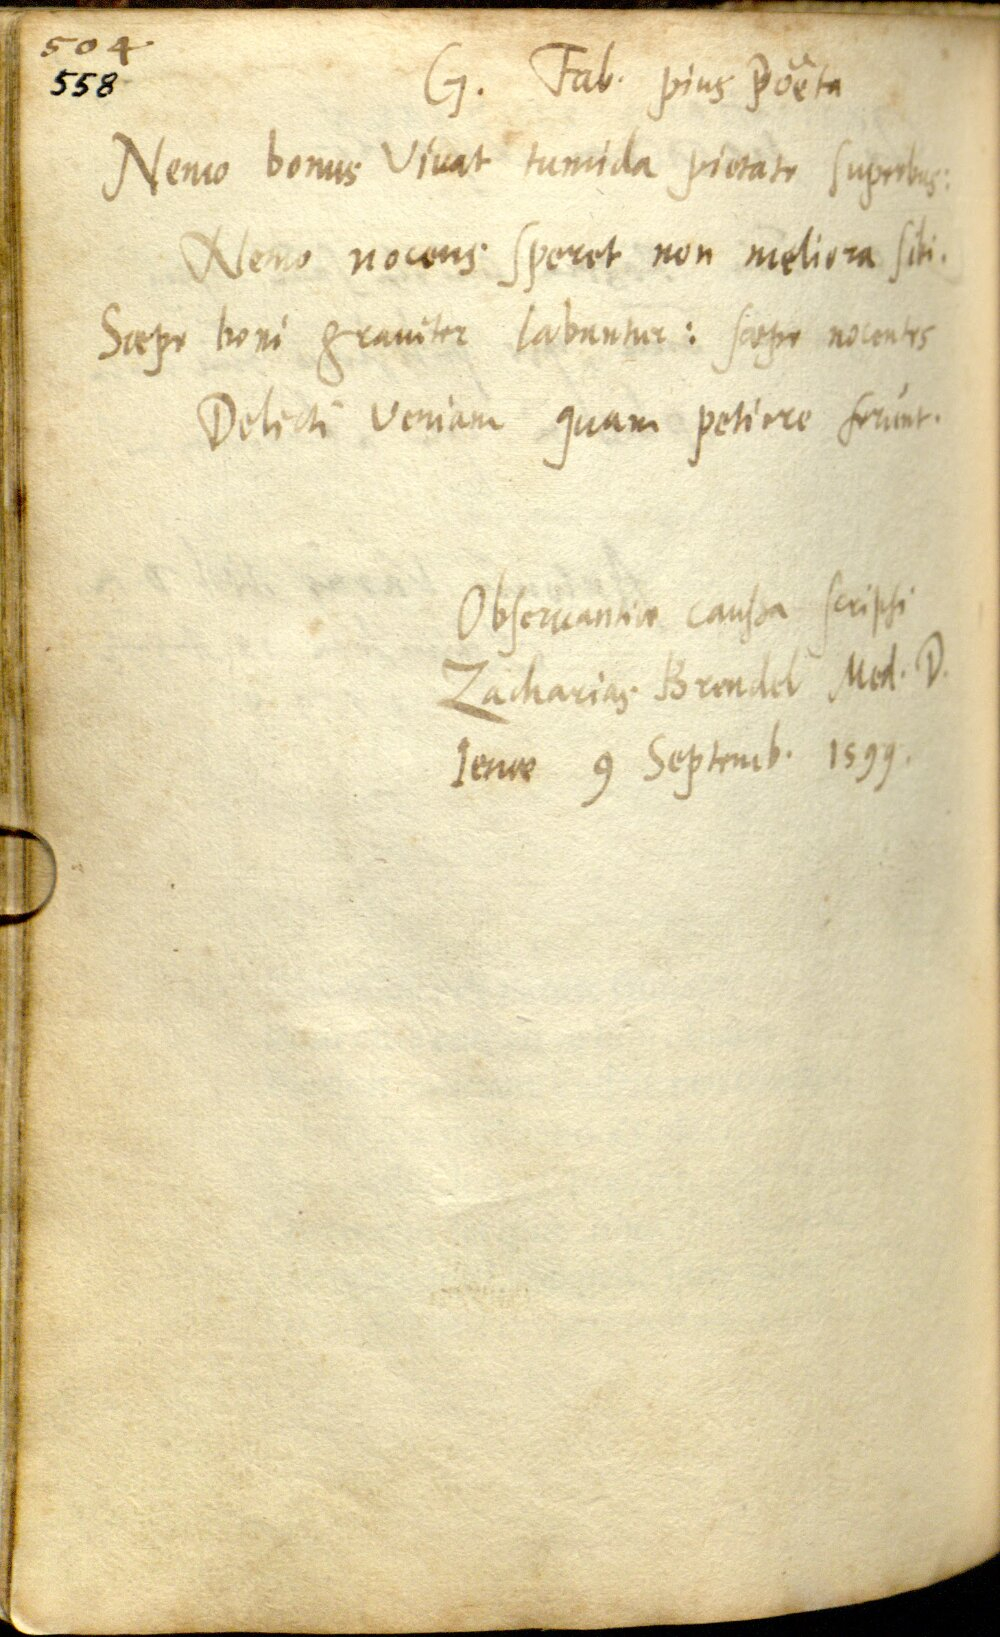 504
558
G. Fab. pius Poëta
Nemo bonus Viuat tumida pietate superbus:
Nemo nocens speret non meliora sibi.
Sæpe boni grauiter labuntur: sæpe nocentes
Delicti veniam quam petiere ferunt.
Obseruantiæ caussa scripsi
Zacharias Brendel Med. D.
Ienæ 9 Septemb. 1599.